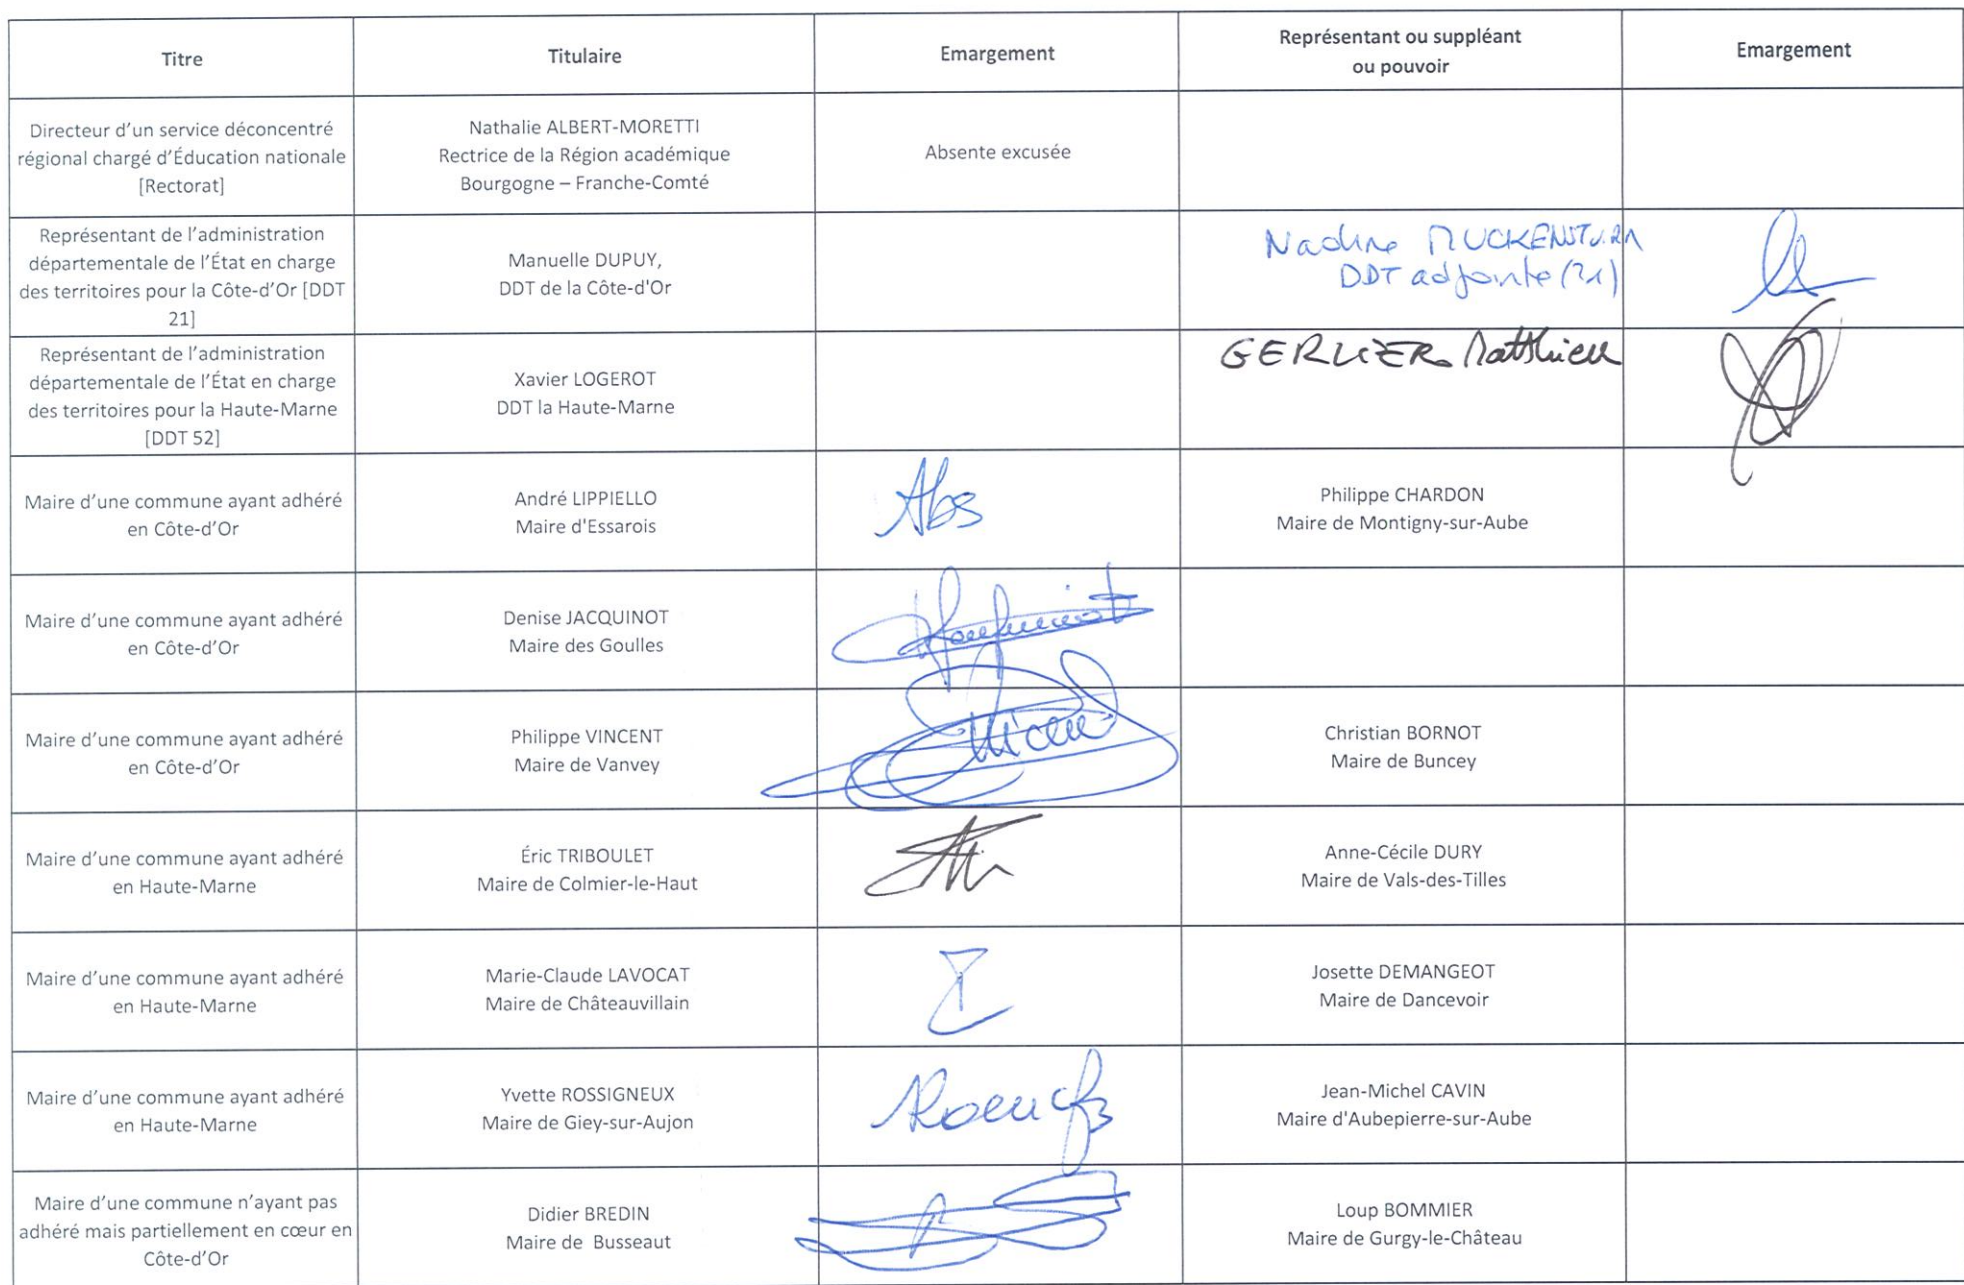 Titre
Titulaire
Emargement
Représentant ou suppléant
ou pouvoir
Emargement
Directeur d'un service déconcentré
régional chargé d'Éducation nationale
[Rectorat]
Nathalie ALBERT-MORETTI
Rectrice de la Région académique
Bourgogne – Franche-Comté
Absente excusée
Représentant de l'administration
départementale de l'État en charge
des territoires pour la Côte-d'Or [DDT
21]
Manuelle DUPUY,
DDT de la Côte-d'Or
Nadine
DDT adjointe (21)
Représentant de l'administration
départementale de l'État en charge
des territoires pour la Haute-Marne
[DDT 52]
Xavier LOGEROT
DDT la Haute-Marne
GERLIER Matthieu
Maire d'une commune ayant adhéré
en Côte-d'Or
André LIPPIELLO
Maire d'Essarois
Abs
Philippe CHARDON
Maire de Montigny-sur-Aube
Maire d'une commune ayant adhéré
en Côte-d'Or
Denise JACQUINOT
Maire des Goulles
Maire d'une commune ayant adhéré
en Côte-d'Or
Philippe VINCENT
Maire de Vanvey
Christian BORNOT
Maire de Buncey
Maire d'une commune ayant adhéré
en Haute-Marne
Éric TRIBOULET
Maire de Colmier-le-Haut
Anne-Cécile DURY
Maire de Vals-des-Tilles
Maire d'une commune ayant adhéré
en Haute-Marne
Marie-Claude LAVOCAT
Maire de Châteauvillain
Josette DEMANGEOT
Maire de Dancevoir
Maire d'une commune ayant adhéré
en Haute-Marne
Yvette ROSSIGNEUX
Maire de Giey-sur-Aujon
Jean-Michel CAVIN
Maire d'Aubepierre-sur-Aube
Maire d'une commune n'ayant pas
adhéré mais partiellement en cœur en
Côte-d'Or
Didier BREDIN
Maire de Busseaut
Loup BOMMIER
Maire de Gurgy-le-Château